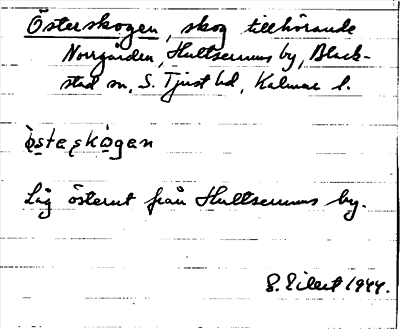 Österskogen, skog tillhörande
Norrgården, Hultserums by, Black-
stad sn, S. Tjust hd, Kalmar l.
ò̀stəskó̀gən
Låg österut från Hultserums by.
S. Eilert 1944.